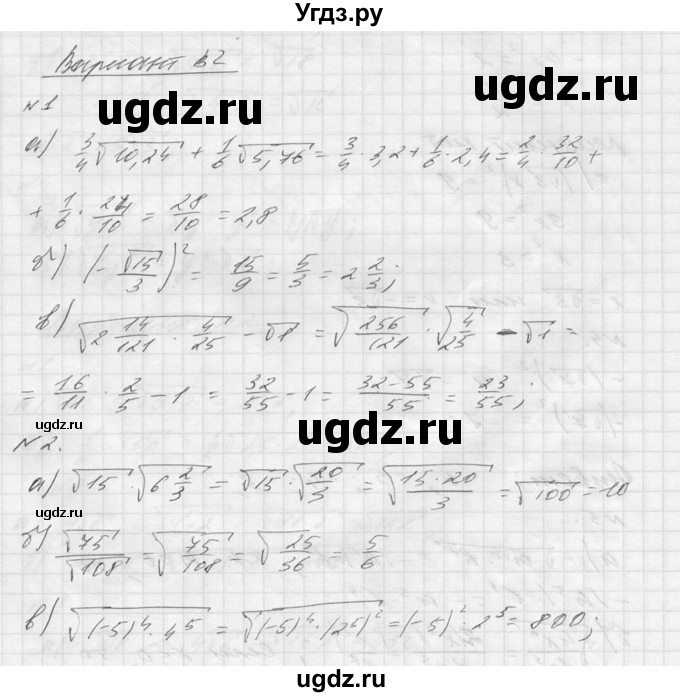 Угдз.ру
Вариант В2
№1
ugdz.ru ugdz.ru
а) 3/4 √10,24 + 1/6 √5,76 = 3/4 · 3,2 + 1/6 · 2,4 = 2/4 · 32/10 +
+ 1/6 · 24/10 = 28/10 = 2,8
б) (-√15/3)² = 15/9 = 5/3 = 2 2/3;
в) √(2 14/121 · 4/25) - √1 = √(256/121) · √(4/25) - √1 =
= 16/11 · 2/5 - 1 = 32/55 - 1 = (32-55)/55 = 23/55;
ugdz.ru ugdz.ru
№2.
а) √15 · √(6 2/3) = √15 · √(20/3) = √((15·20)/3) = √100 = 10
б) √75/√108 = √(75/108) = √(25/36) = 5/6
в) √((-5)⁴ · 4⁵) = √((-5)⁴ · (2⁵)²) = (-5)² · 2⁵ = 800;
ugdz.ru ugdz.ru